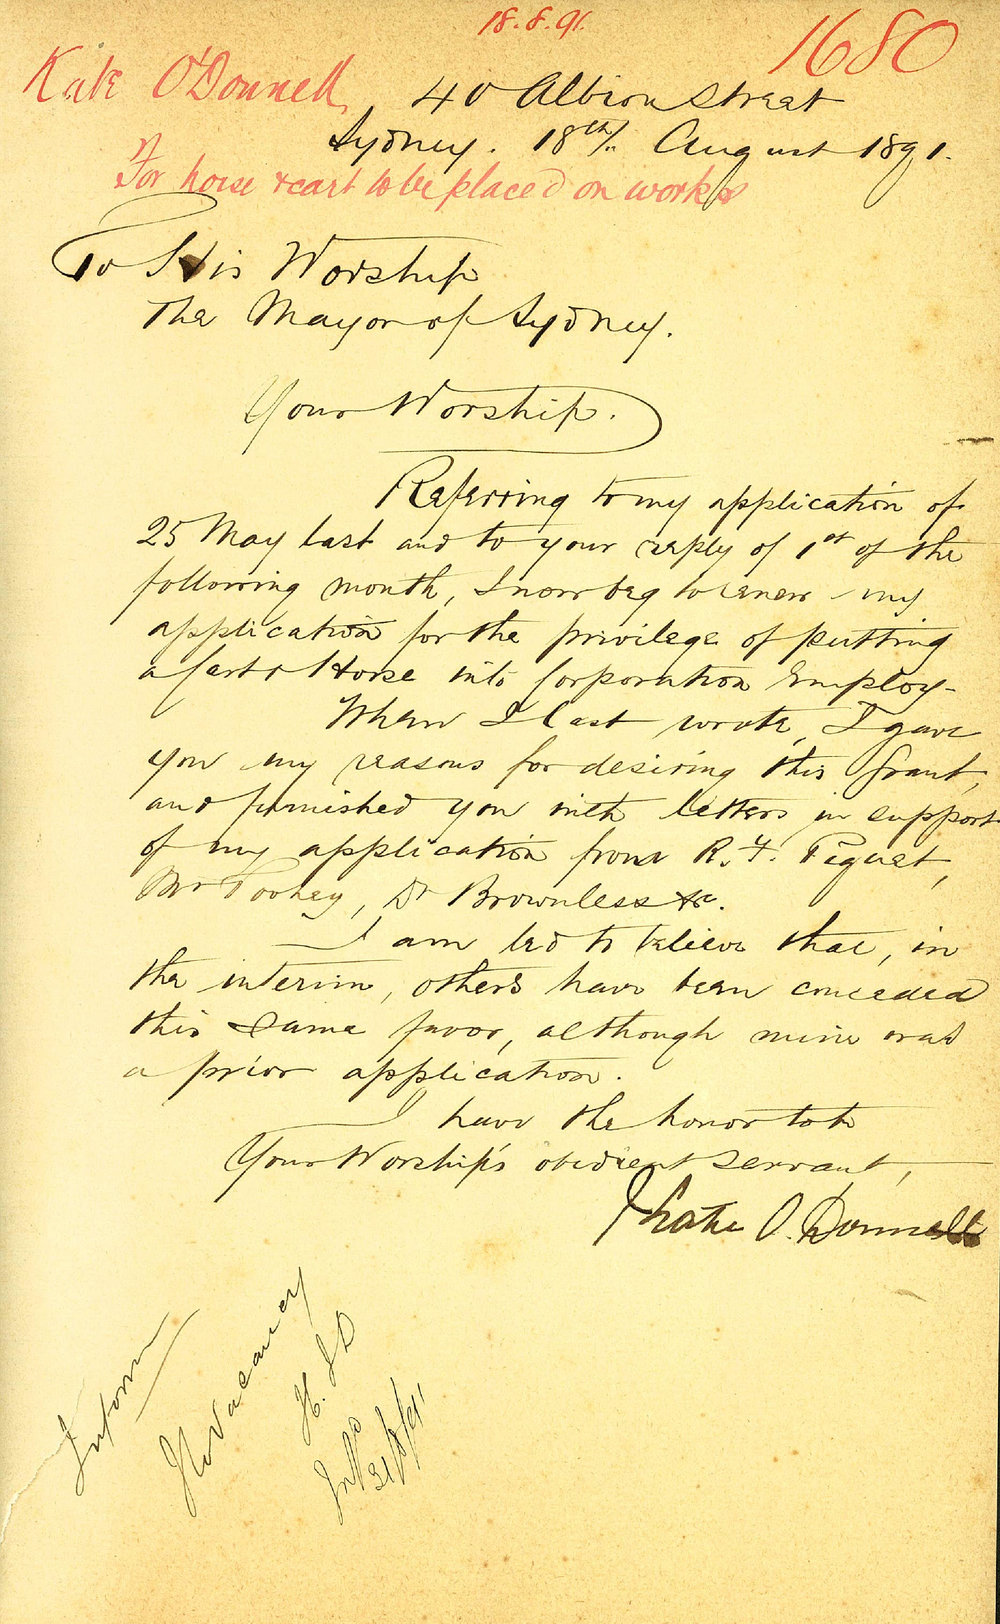 18.8.91.
1680
Kate O'Donnell
40 Albion Street
Sydney. 18th/. August 1891.
For horse & cart to be placed on works
To His Worship
The Mayor of Sydney.
Your Worship.
Referring to my application of
25 May last and to your reply of 1st of the
following month, I now beg to renew my
application for the privilege of putting
a Cart & Horse into Corporation Employ-
When I last wrote, I gave
you my reasons for desiring this Grant,
and furnished you with letters in support
of my application from R. F. Piguet,
Mr Toohey, Dr Brownless &c.
I am led to believe that, in
the interim, others have been conceded
this same favor, although mine was
a prior application.
I have the honor to be
Your Worship's obedient servant,
Kate O.Donnell
Inform
No Vacancy
Infd
31/8/91